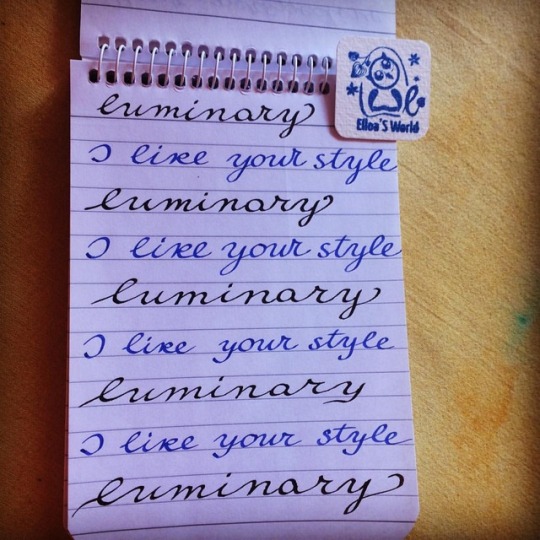 luminary
Elloa'S World
I like your style
luminary
I like your style
luminary
I like your style
luminary
I like your style
luminary